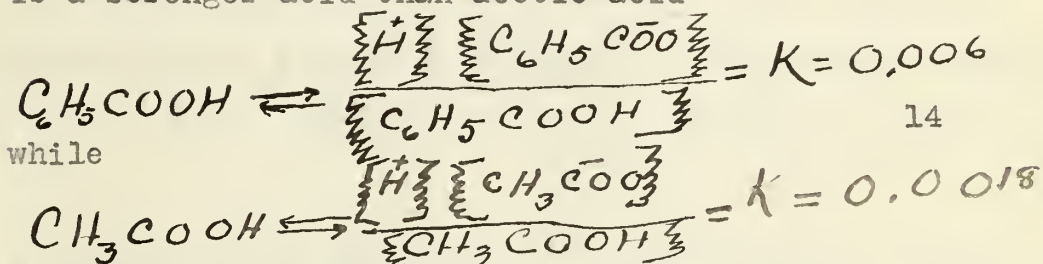 is a stronger acid than acetic acid
C₆H₅COOH ⇌ [H⁺] [C₆H₅COO⁻] / [C₆H₅COOH] = K = 0.006
14
while
CH₃COOH ⇌ [H⁺] [CH₃COO⁻] / [CH₃COOH] = K = 0.0018